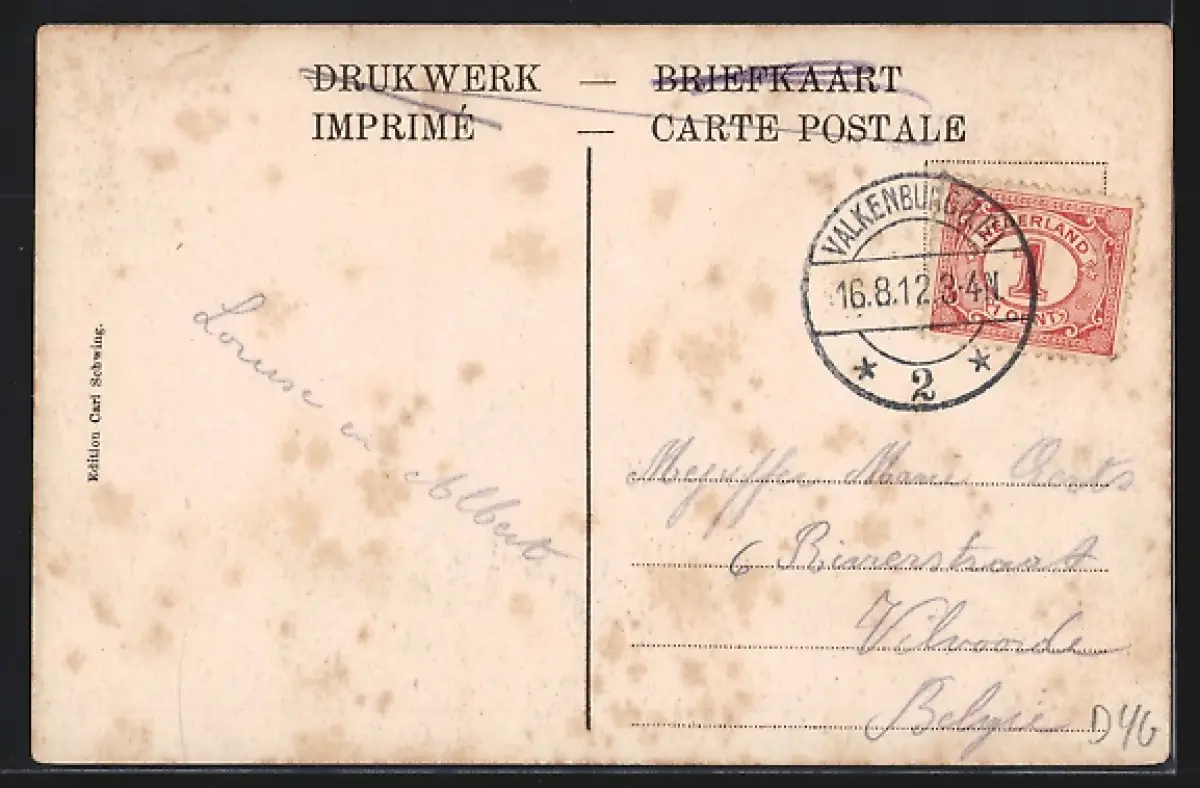 DRUKWERK — BRIEFKAART
IMPRIMÉ — CARTE POSTALE
VALKENBURG
16.8.12.3-4N
2
NEDERLAND
1
1 CENT
Edition Carl Schwing.
Louise en Albert
Mejuffer Marie
6 Rivierstraat
Vilvoorde
België
D46